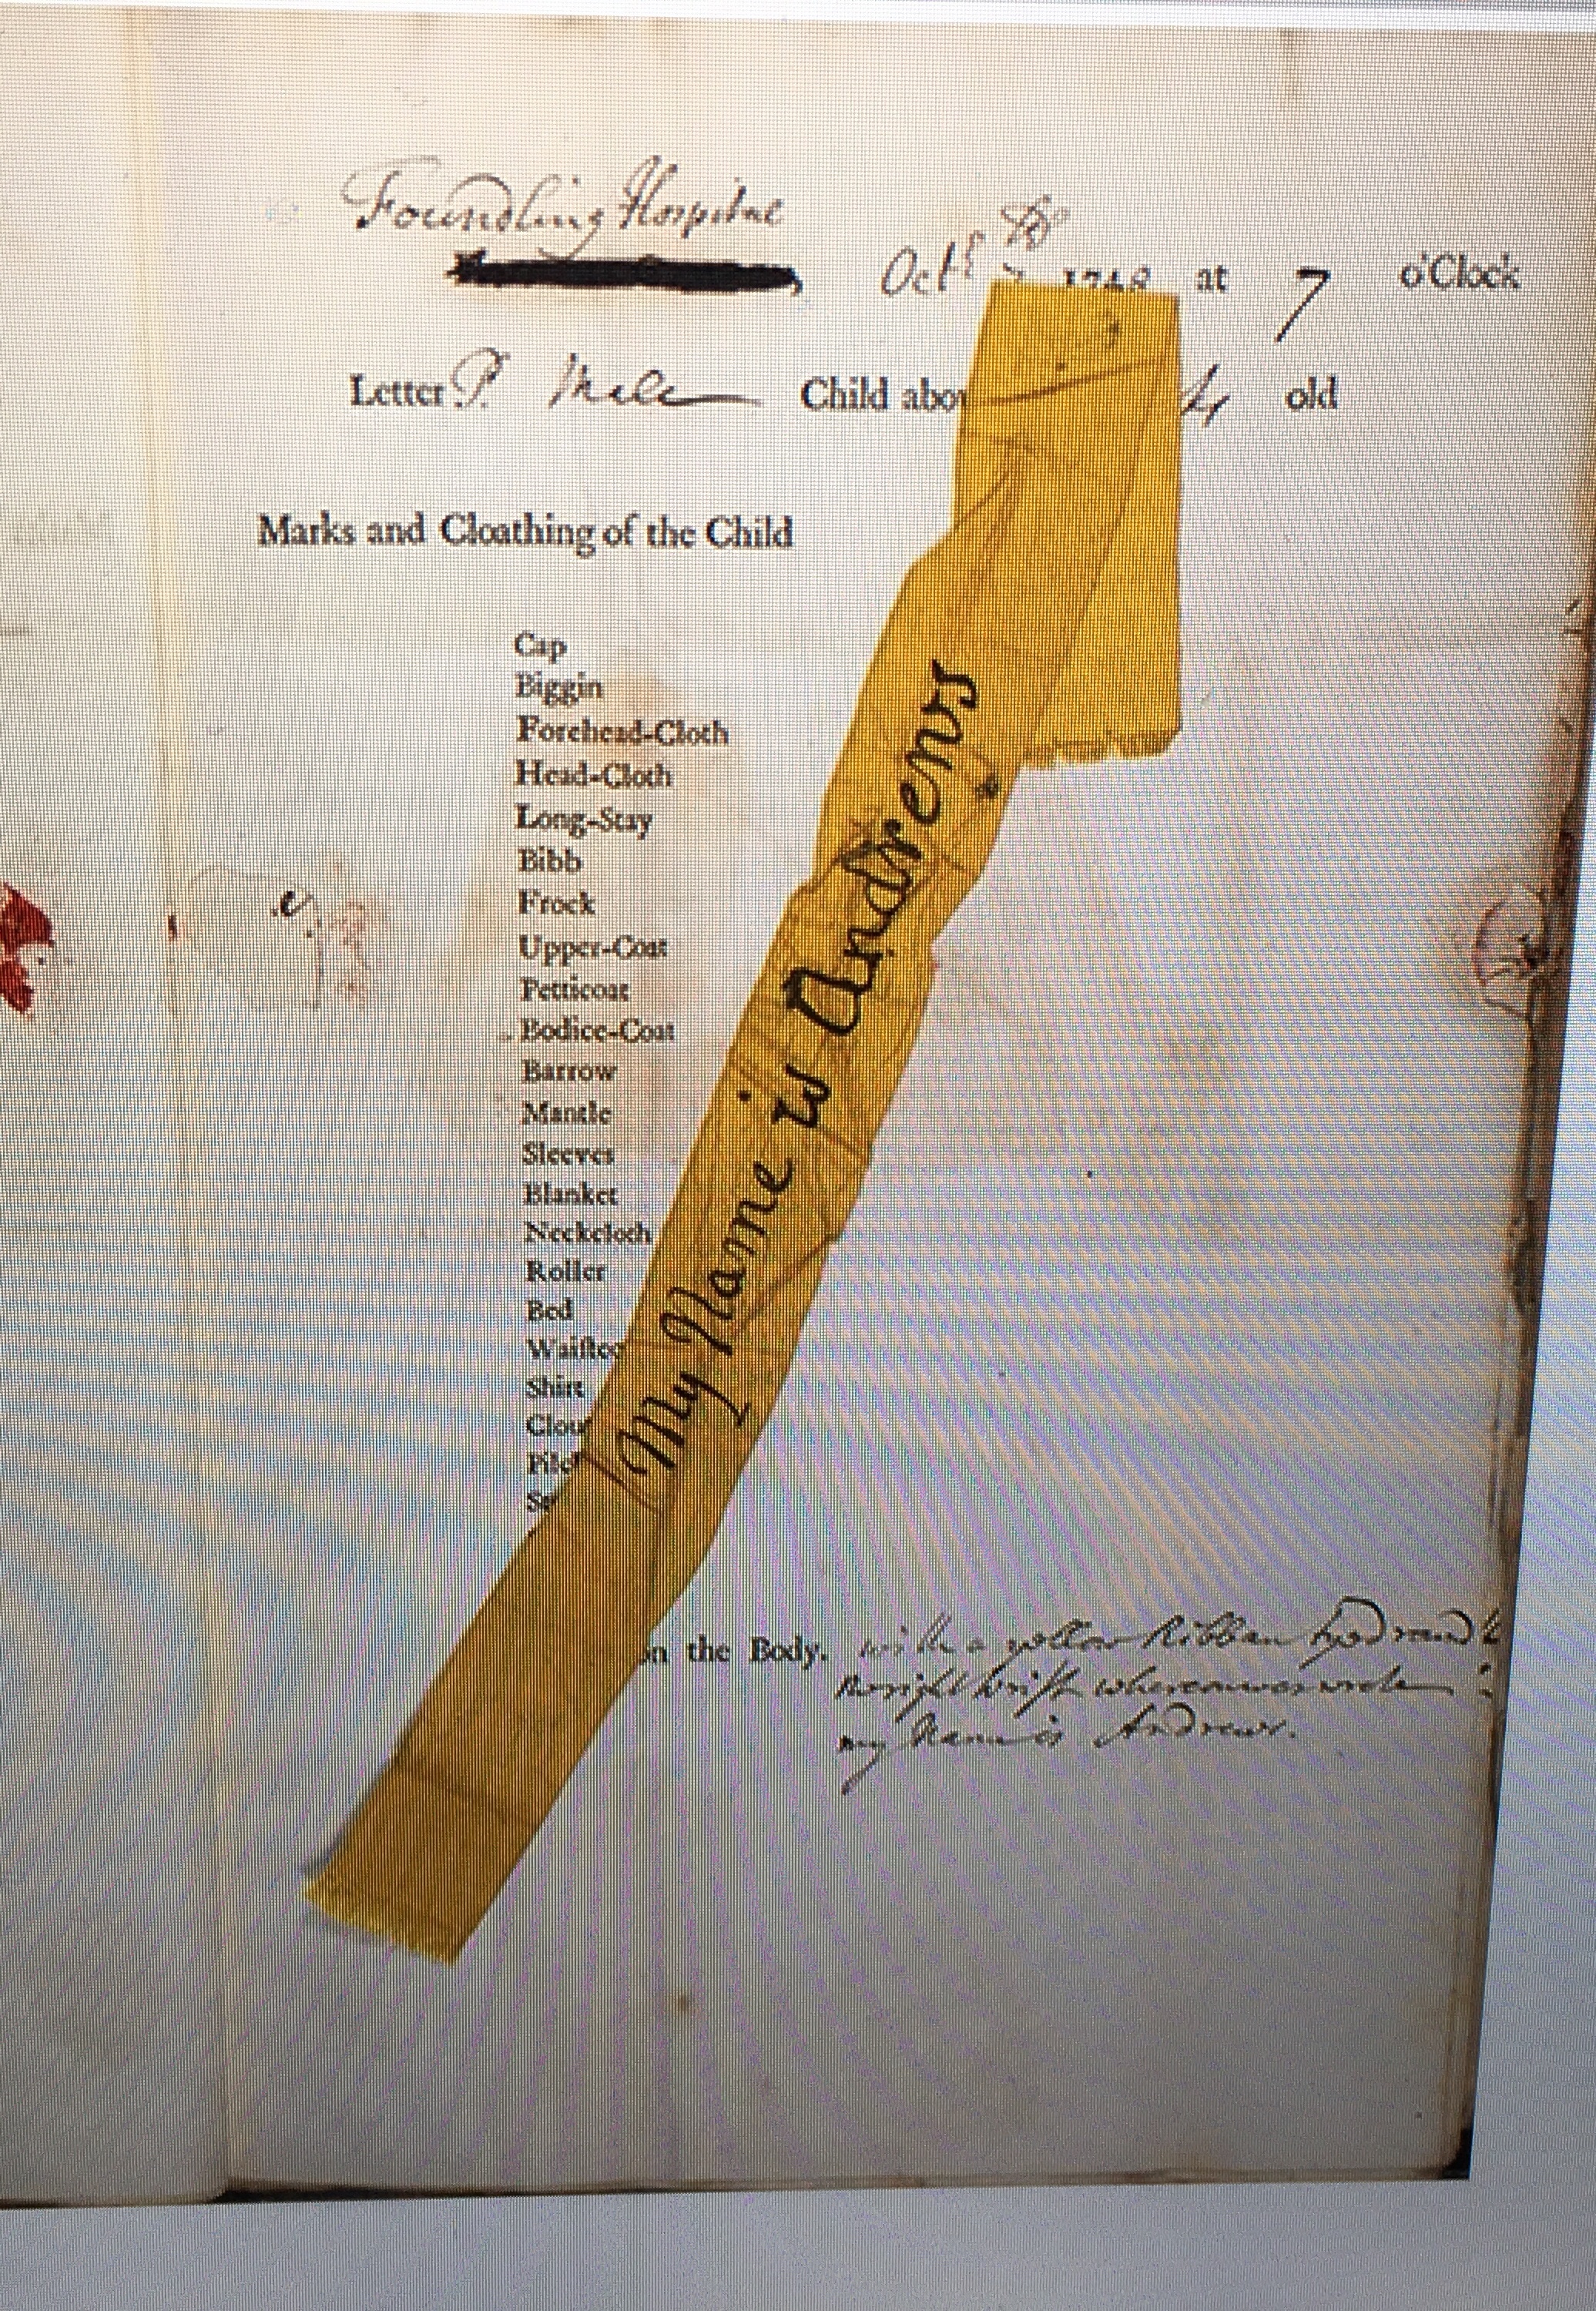 Foundling Hospital
Octr 1748 at 7 o'Clock
Letter P. Male Child abo old
Marks and Cloathing of the Child
Cap
Biggin
Forehead-Cloth
Head-Cloth
Long-Stay
Bibb
Frock
Upper-Coat
Petticoat
Bodice-Coat
Barrow
Mantle
Sleeves
Blanket
Neckcloth
Roller
Bed
Waistco
Shirt
Clou
Pilc
My Name is Andrews
on the Body. with a yellow Ribban tyed round
the right wrist whereon was wrote
my Name is Andrews.